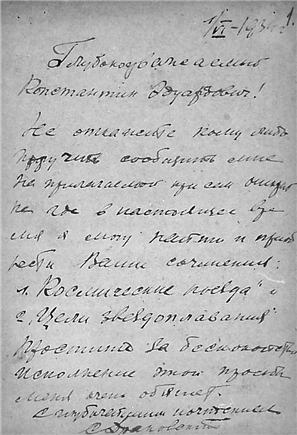 1/VI-193
Глубокоуважаемый
Константин Эдуардович!
Не откажите кому либо
поручить сообщить мне
на прилагаемой при сем открыт
ке где в настоящее вре
мя я могу найти и приоб
рести Ваши сочинения:
1. "Космические поезда" и
2. "Цели звездоплавания"
Простите за беспокойство
исполнение этой просьбы
меня очень обяжет.
С глубочайшим почтением
С.